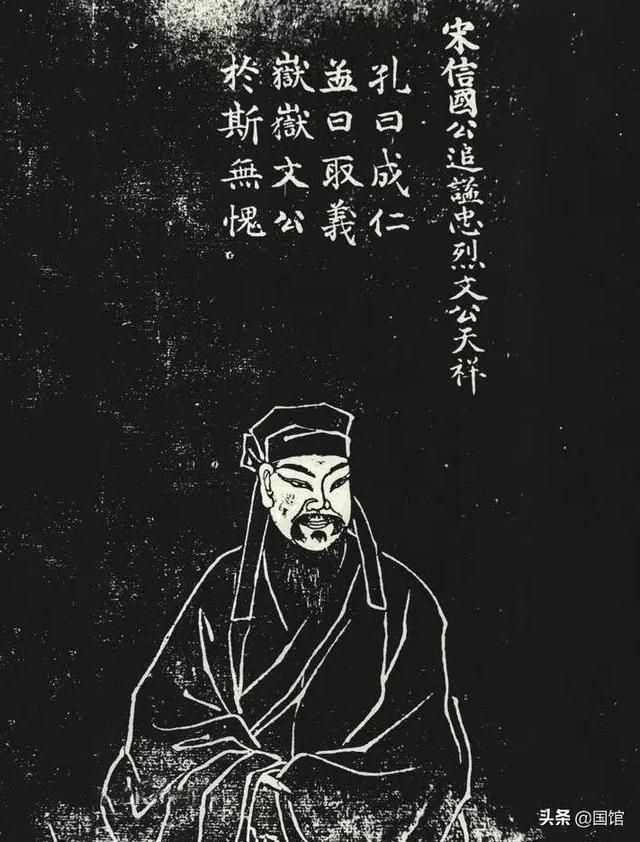 宋信國公追謚忠烈文公天祥
孔曰成仁
孟曰取義
嶽嶽文公
於斯無愧
头条 @国馆